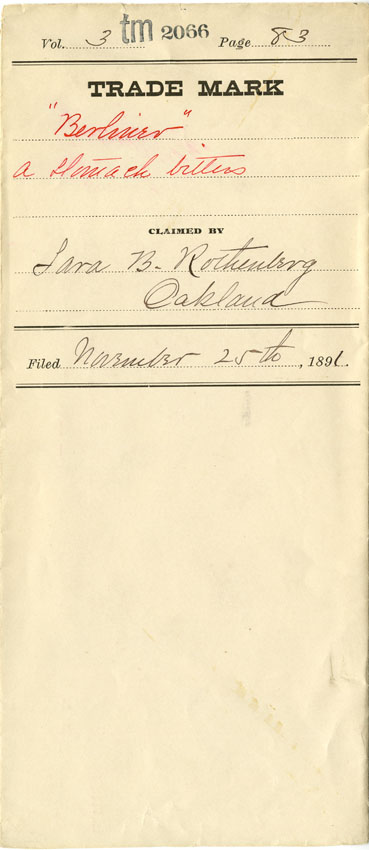 Vol. 3 tm 2066 Page 83
TRADE MARK
"Berliner"
a stomach bitters
CLAIMED BY
Sara B. Rothenberg
Oakland
Filed November 25th, 1891.